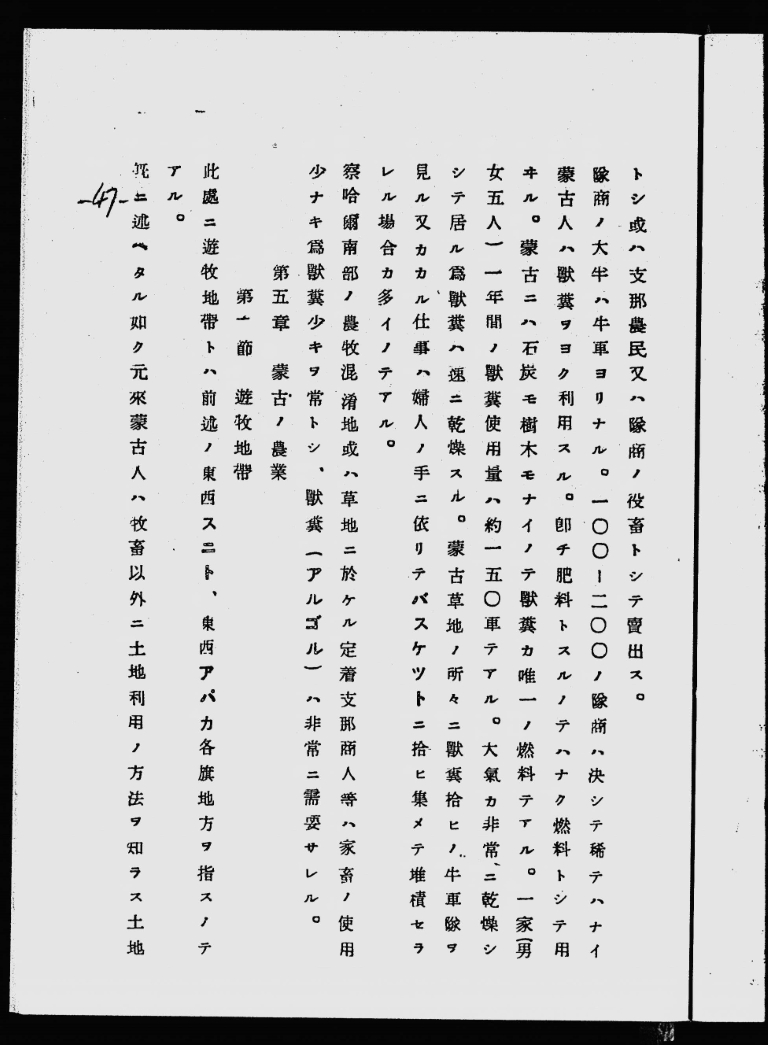 トシ或ハ支那農民又ハ隊商ノ役畜トシテ賣出ス。
隊商ノ大半ハ牛車ヨリナル。一〇〇ー二〇〇ノ隊商ハ決シテ稀テハナイ
蒙古人ハ獸糞ヲヨク利用スル。卽チ肥料トスルノテハナク燃料トシテ用
ヰル。蒙古ニハ石炭モ樹木モナイノテ獸糞カ唯一ノ燃料テアル。一家(男
女五人)一年間ノ獸糞使用量ハ約一五〇車テアル。大氣カ非常ニ乾燥シ
シテ居ル爲獸糞ハ速ニ乾燥スル。蒙古草地ノ所々ニ獸糞拾ヒノ牛車隊ヲ
見ル又カカル仕事ハ婦人ノ手ニ依リテバスケツトニ拾ヒ集メテ堆積セラ
レル場合カ多イノテアル。
察哈爾南部ノ農牧混淆地或ハ草地ニ於ケル定着支那商人等ハ家畜ノ使用
少ナキ爲獸糞少キヲ常トシ、獸糞(アルゴル)ハ非常ニ需要サレル。
第五章 蒙古ノ農業
第一節 遊牧地帶
此處ニ遊牧地帶トハ前述ノ東西スニト、東西アパカ各旗地方ヲ指スノテ
アル。
旣ニ述ヘタル如ク元來蒙古人ハ牧畜以外ニ土地利用ノ方法ヲ知ラス土地
-47-